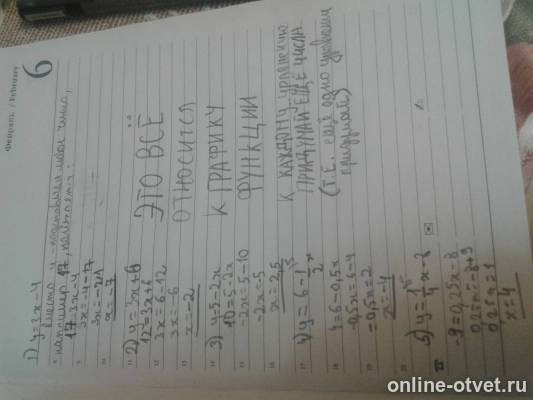 Февраль / February
6
1) y=3x-4
вместо y подставляем любое число,
например 17, получается:
17=3x-4
3x=-4-17
3x=-21
x=-7
2) y=3x+6
12=3x+6
3x=6-12
3x=-6
x=-2
3) y=5-2x
10=5-2x
-2x=5-10
-2x=-5
x=2,5
4) y=6-1/2x
4=6-0,5x
-0,5x=6-4
=0,5x=2
x=-4
5) y=1/4x-8
-9=0,25x-8
0,25x=-8+9
0,25x=1
x=4
ЭТО ВСЁ
ОТНОСИТСЯ
К ГРАФИКУ
ФУНКЦИИ
К КАЖДОМУ уравнению
ПРИДУМАЙ ЕЩЁ ЧИСЛА
(Т.Е. ещё одно уравнение
придумай)
online-otvet.ru